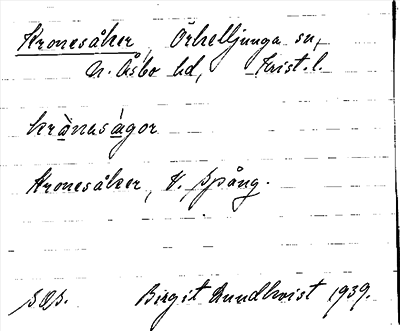 Kronesåker, Örkelljunga sn,
N. Åsbo hd, Krist. l.
kròneságor
Kronesåker, V. Spång.
SOS. Birgit Rundkvist 1939.